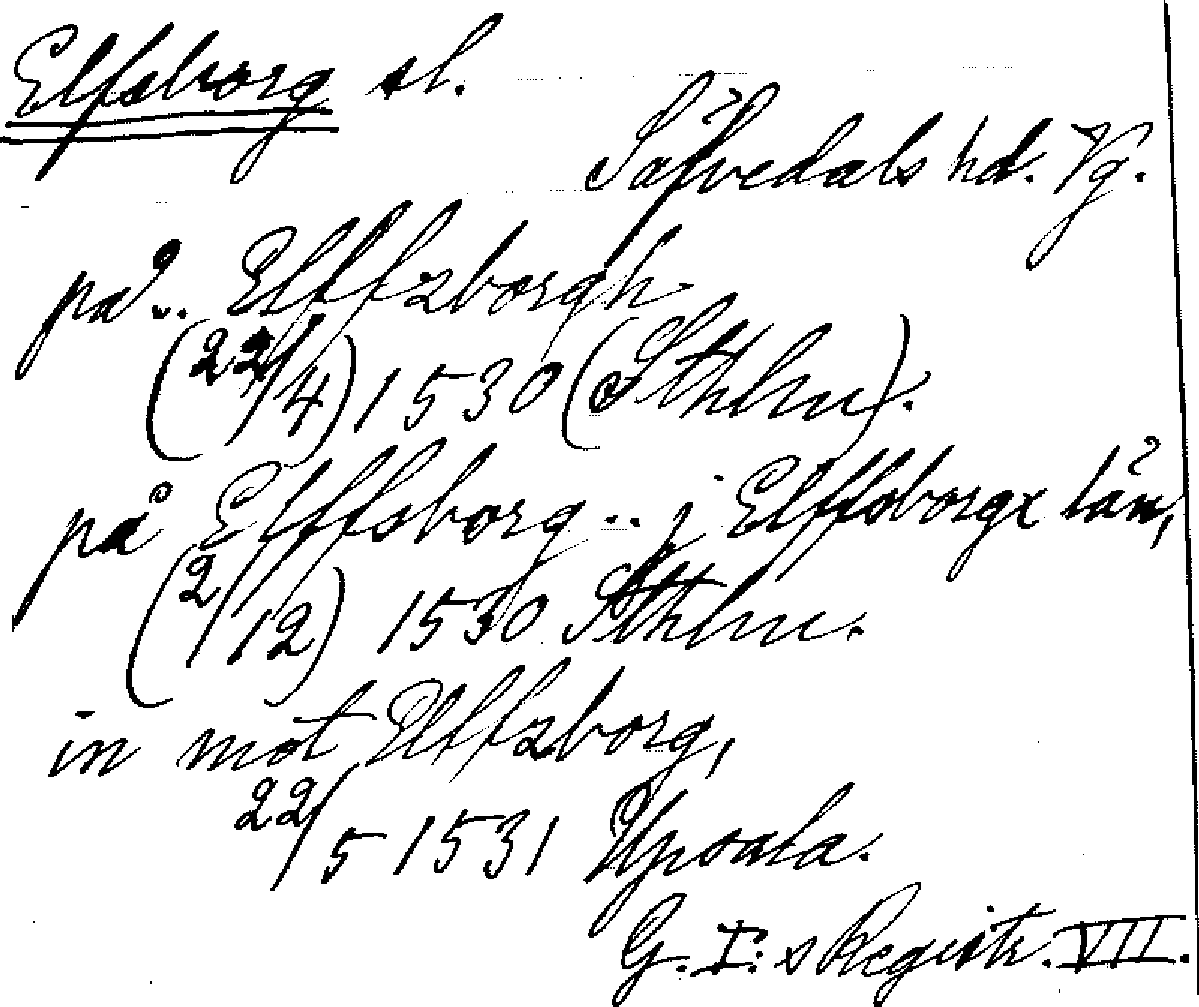 Elfsborg sl.
Säfvedals hd. Vg.
på.. Elffzborgh
(22/4) 1530 (Sthlm).
på Elffsborg .. j Elffsborgx län,
(2/12) 1530 Sthlm.
in mot Elffzborg,
22/5 1531 Upsala.
G. I:s Registr. VII.